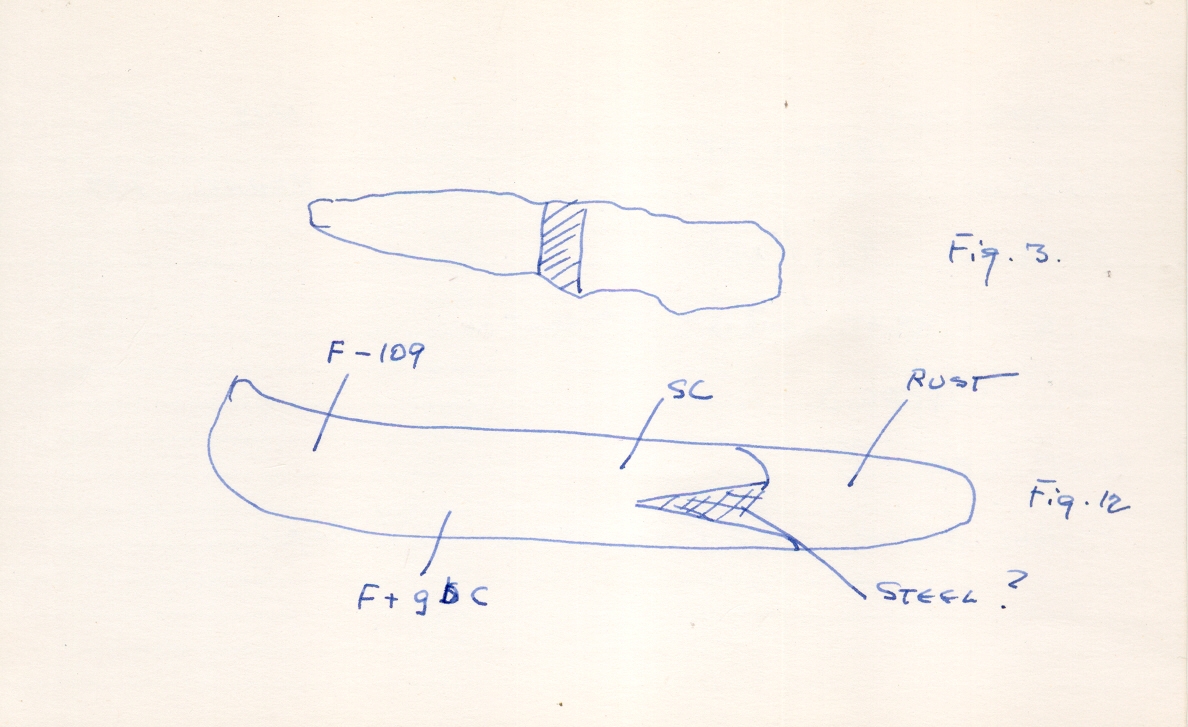 Fig. 3.
F-109
SC
RUST
Fig. 12
F + g b C
STEEL ?